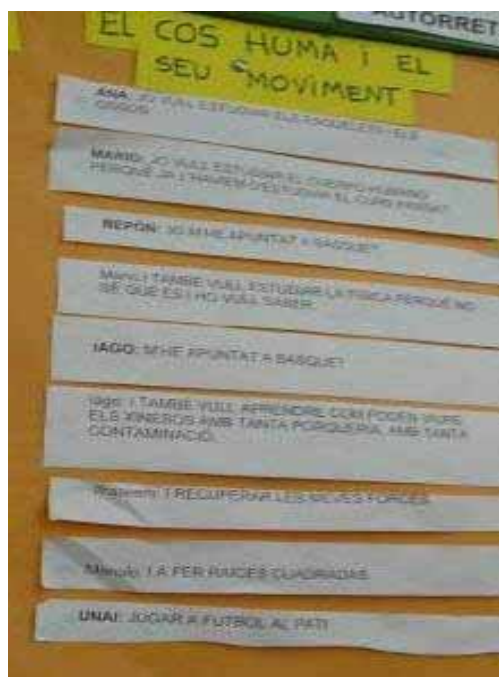 AUTORRET
EL COS HUMA i EL
SEU MOVIMENT
ANA: JO VULL ESTUDIAR ELS ESQUELETS I ELS
OSSOS
MARIO: JO VULL ESTUDIAR EL CUERPO HUMANO
PERQUÈ JA L'HAVIEM D'ESTUDIAR EL CURS PASSAT
REPÓN: JO M'HE APUNTAT A BASQUET
Mario: I TAMBE VULL ESTUDIAR LA FISICA PERQUÈ NO
SÉ QUE ES I HO VULL SABER
IAGO: M'HE APUNTAT A BASQUET
Iago: I TAMBE VULL APRENDRE COM PODEN VIURE
ELS XINEROS AMB TANTA PORQUERIA, AMB TANTA
CONTAMINACIÓ.
I RECUPERAR LES MEVES FORCES
Manolo: I A FER RAICES CUADRADAS
UNAI: JUGAR A FUTBOL AL PATI